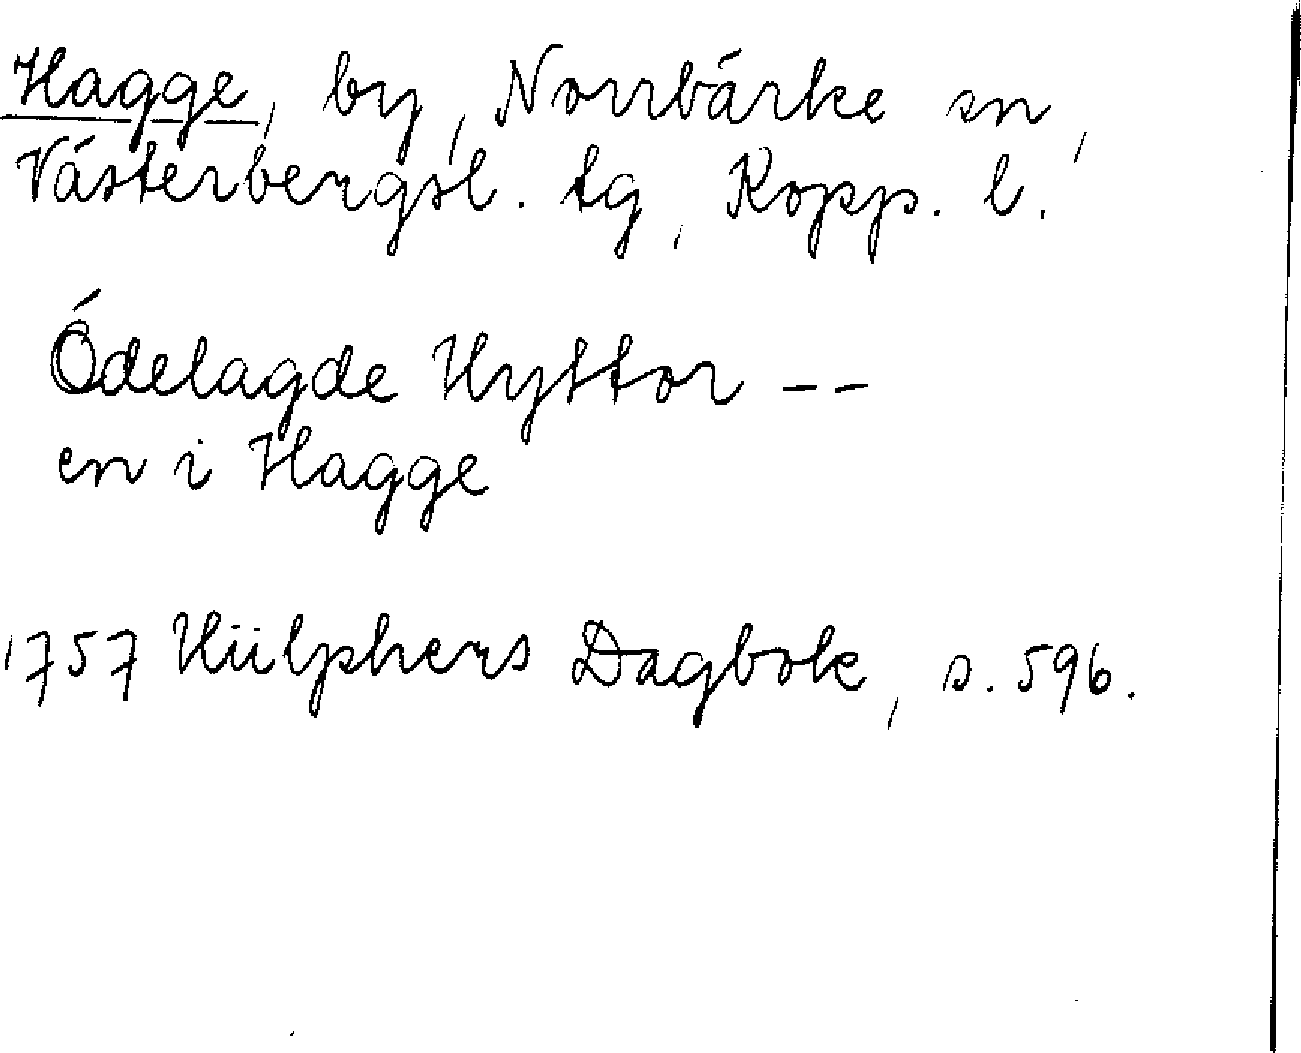 Hagge, by, Norrbärke sn,
Västerbergsl. tg, Kopp. l.
Ödelagde Hyttor --
en i Hagge
1757 Hülphers Dagbok, s. 596.